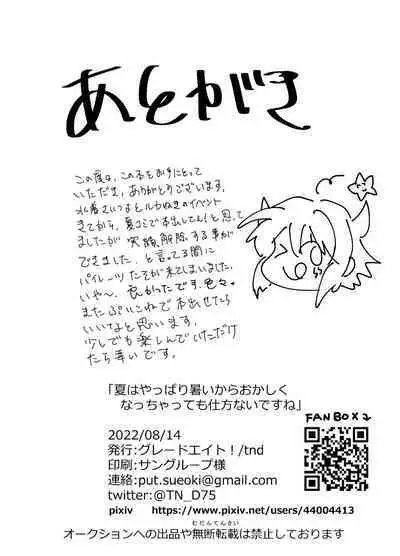 あとがき
この度は、この本をお手にとって
いただき、ありがとうございます。
水着さいつよとルカねきのイベント
きてから、夏コミで本出してん!と思って
ましたが 実績解除する事が
できました。と言ってる間に
パイレーツたそが来てしまいました。
いや〜、良かったです。色々。
またぷいこねで本出せたら
いいなと思います。
少しでも楽しんでいただけ
たら幸いです。
「夏はやっぱり暑いからおかしく
なっちゃっても仕方ないですね」
FANBOX
2022/08/14
発行:グレードエイト!/tnd
印刷:サングループ様
連絡:put.sueoki@gmail.com
twitter:@TN_D75
pixiv https://www.pixiv.net/users/44004413
むだんてんさい
オークションへの出品や無断転載は禁止しております